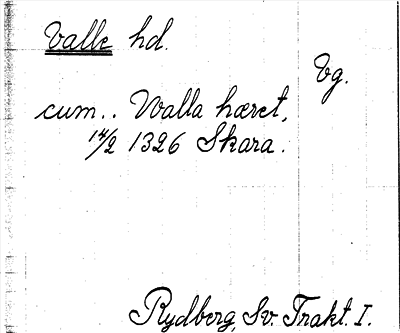 Valle hd.
Vg.
cum.. Walla hæret,
14/2 1326 Skara.
Rydberg, Sv. Trakt. I.